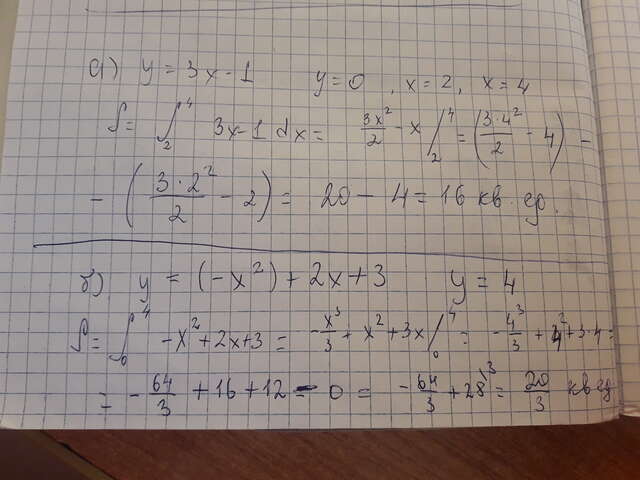 а) y = 3x - 1    y = 0, x = 2, x = 4
S = ∫₂⁴ 3x - 1 dx = 3x²/2 - x /₂⁴ = (3·4²/2 - 4) -
- (3·2²/2 - 2) = 20 - 4 = 16 кв. ед.
б) y = (-x²) + 2x + 3    y = 4
S = ∫₀⁴ -x² + 2x + 3 = -x³/3 + x² + 3x /₀⁴ = -4³/3 + 4² + 3·4 =
= -64/3 + 16 + 12 - 0 = -64/3 + 28\³ = 20/3 кв ед